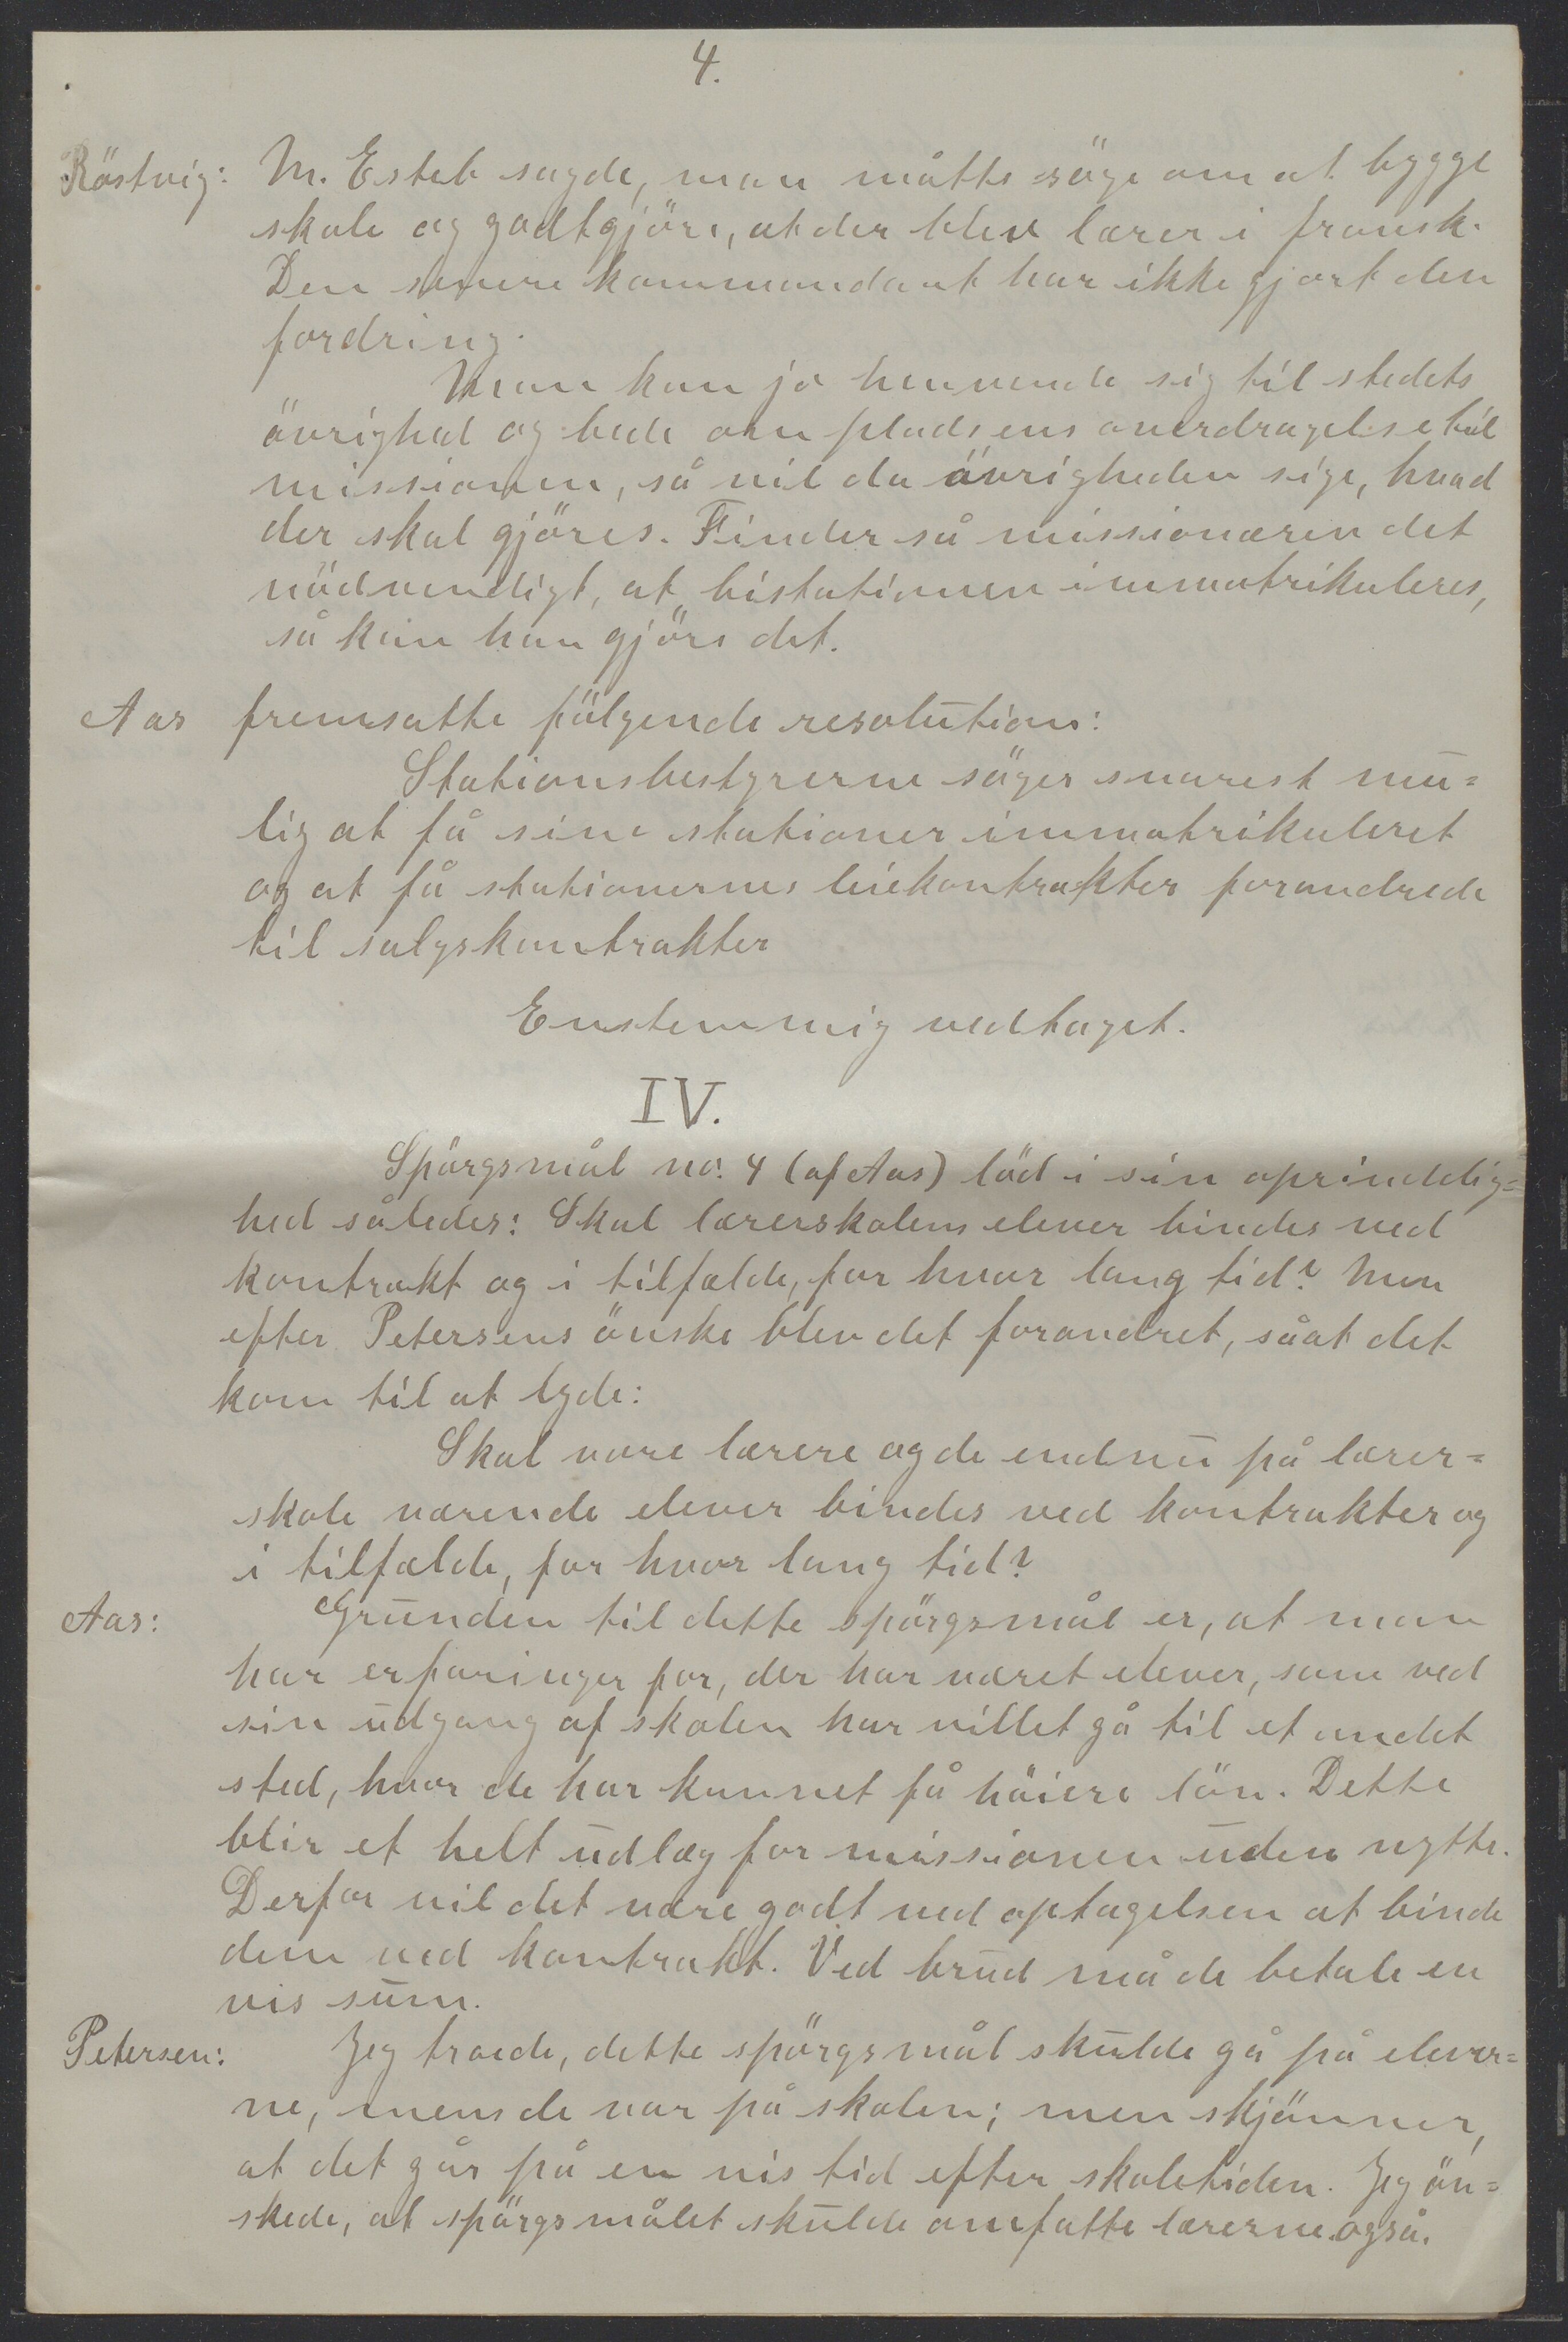 4.
Röstvig: M. Esteb sagde, man måtte söge om at bygge
skole og godtgjöre, at der blev lærer i fransk.
Den senere kommandant har ikke gjort den
fordring.
Man kan jo henvende sig til stedets
övrighed og bede om pladsens overdragelse til
missionen, så vil da övrigheden sige, hvad
der skal gjöres. Finder så missionæren det
nödvendigt, at bistationen immatrikuleres,
så kan han gjöre det.
Aas fremsatte fölgende resolution:
Stationsbestyrerne söger snarest mu=
lig at få sine stationer immatrikuleret
og at få stationernes leiekontrakter forandrede
til salgskontrakter
Enstemmig vedtaget.
IV.
Spörgsmål no. 4 (af Aas) löd i sin oprindelig=
hed således: Skal lærerskolens elever bindes ved
kontrakt og i tilfælde, for hvor lang tid? Men
efter Petersens önske blev det forandret, såat det
kom til at lyde:
Skal vore lærere og de endnu på lærer=
skole værende elever bindes ved kontrakter og
i tilfælde, for hvor lang tid?
Aas: Grunden til dette spörgsmål er, at man
har erfaringer for, der har været elever, som ved
sin udgang af skolen har villet gå til et andet
sted, hvor de har kunnet få höiere lön. Dette
blir et helt udlæg for missionen uden nytte.
Derfor vil det være godt ved optagelsen at binde
dem ved kontrakt. Ved brud må de betale en
vis sum.
Petersen: Jeg troede, dette spörgsmål skulde gå på elever=
ne, mens de var på skolen; men skjönner,
at det går på en vis tid efter skoletiden. Jeg ön=
skede, at spörgsmålet skulde omfatte lærerne også.